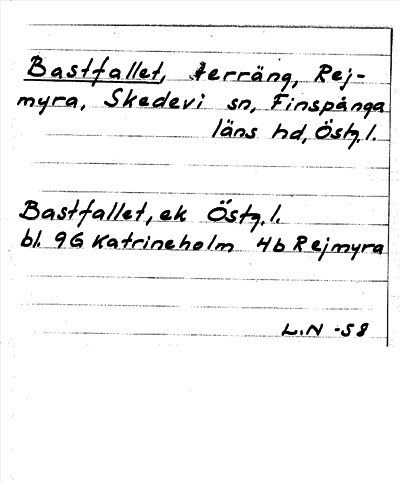 Bastfallet, terräng, Rej-
myra, Skedevi sn, Finspånga
läns hd, Östg. l.
Bastfallet, ek Östg. l.
bl. 9G Katrineholm 4b Rejmyra
L.N -58